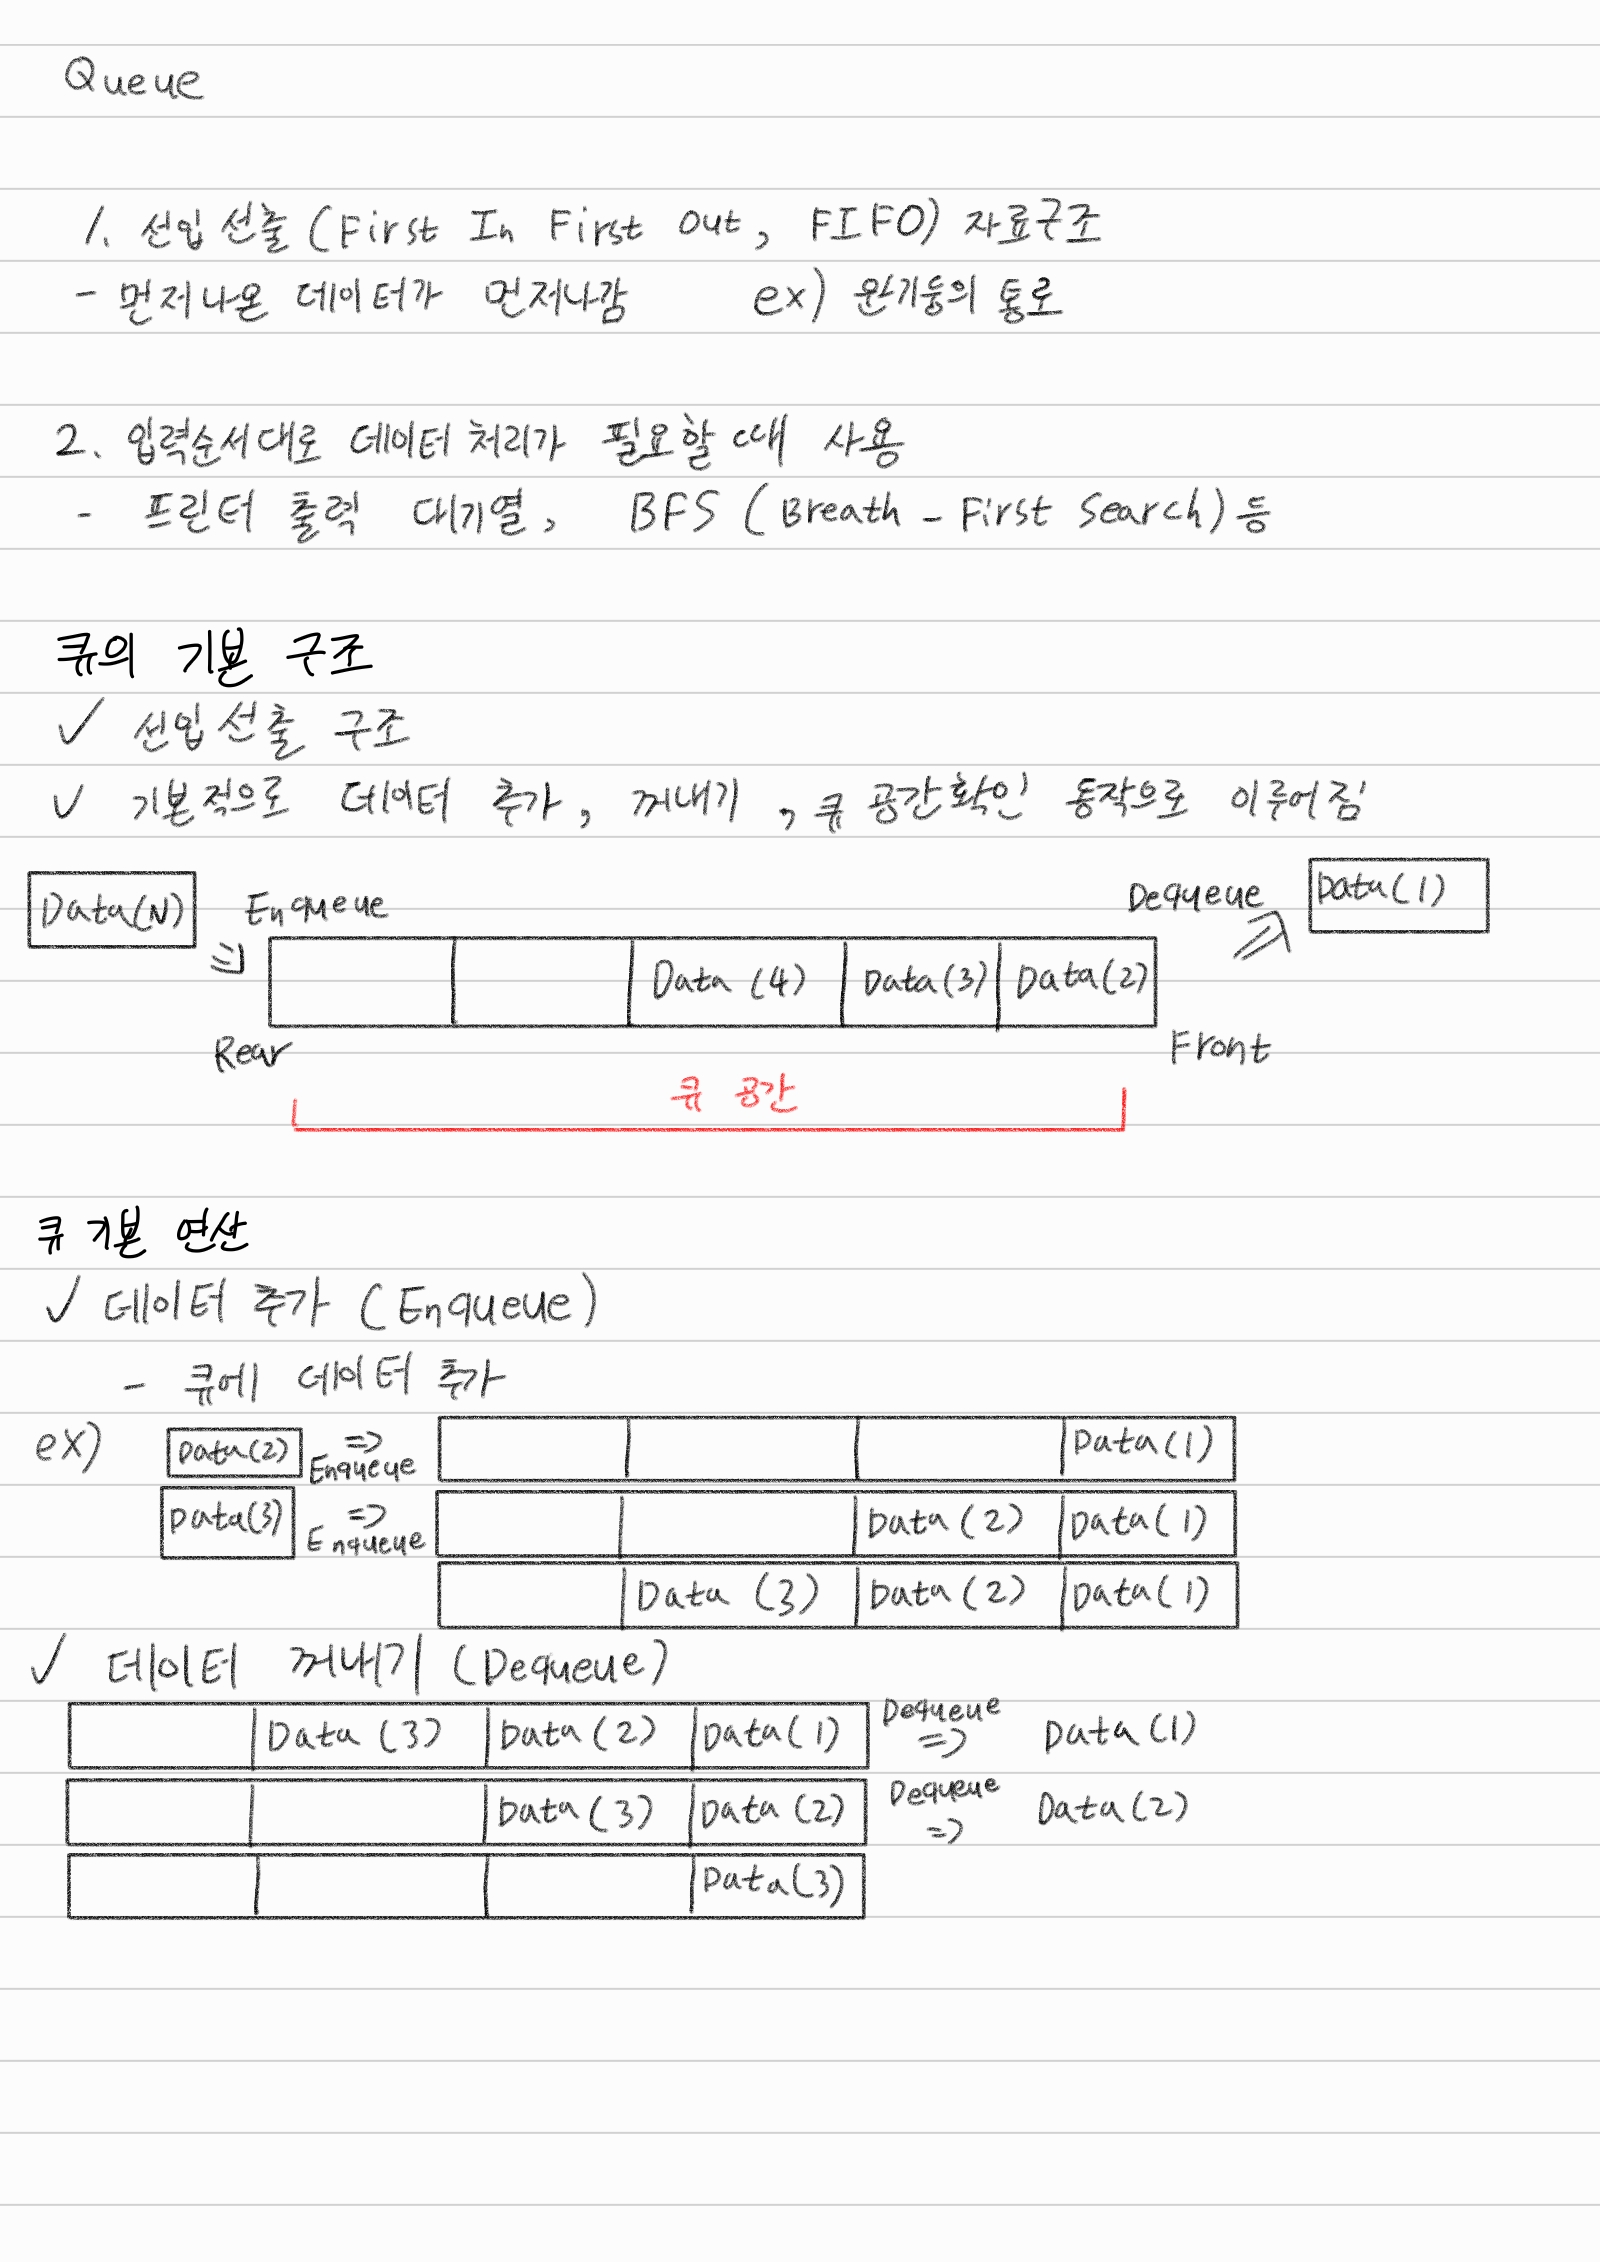 Queue
1. 선입 선출 (First In First Out, FIFO) 자료구조
- 먼저나온 데이터가 먼저나감 ex) 원기둥의 통로
2. 입력순서대로 데이터 처리가 필요할 때 사용
- 프린터 출력 대기열, BFS (Breath - First Search) 등
큐의 기본 구조
✓ 선입 선출 구조
✓ 기본적으로 데이터 추가, 꺼내기, 큐 공간확인 동작으로 이루어짐
Data(N) Enqueue Dequeue Data(1)
⇒ Data (4) Data(3) Data(2) ⇒
Rear Front
큐 공간
큐 기본 연산
✓ 데이터 추가 (Enqueue)
- 큐에 데이터 추가
ex) Data(2) ⇒ Enqueue Data(1)
Data(3) ⇒ Enqueue Data (2) Data(1)
Data (3) Data (2) Data(1)
✓ 데이터 꺼내기 (Dequeue)
Data (3) Data (2) Data(1) Dequeue ⇒ Data (1)
Data (3) Data (2) Dequeue ⇒ Data (2)
Data(3)